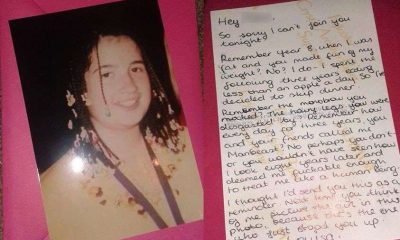 Hey
So sorry I can't join you
tonight?
Remember year 8, when I was
fat and you made fun of my
weight? No? I do - I spent the
following three years eating
less than an apple a day. So I've
decided to skip dinner.
Remember the monobrow you
mocked? The hairy legs you were
disgusted by? Remember how
every day for three years you
and your friends called me
Manbeast? No perhaps you don't
or you wouldn't have seen how
I look eight years later and
deemed me fuckable enough
to treat me like a human being
I thought I'd send you this as a
reminder. Next time you think
of me, picture in this
Photo, because that's the one
who just stood you up